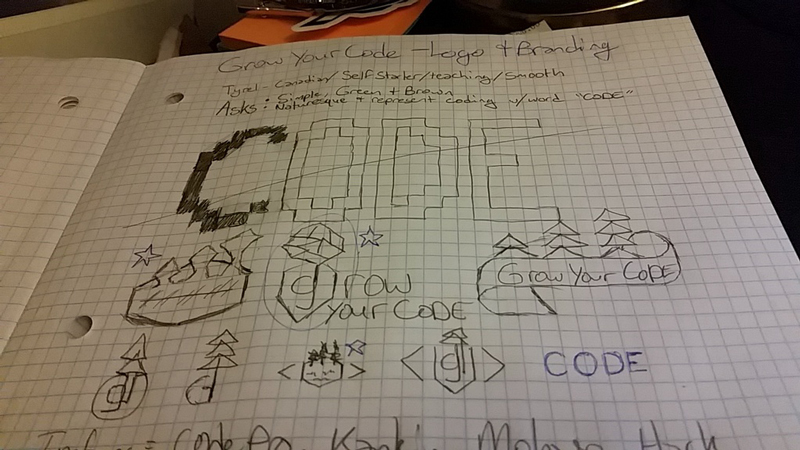 Grow Your Code - Logo + Branding
Type - Canadian / Self Starter / teaching / Smooth
Asks: Simple, Green + Brown
Naturesque + represent coding w/ word "CODE"
CODE
grow
Your CODE
Grow Your CODE
g
< >
< g >
CODE
= Code
Hack